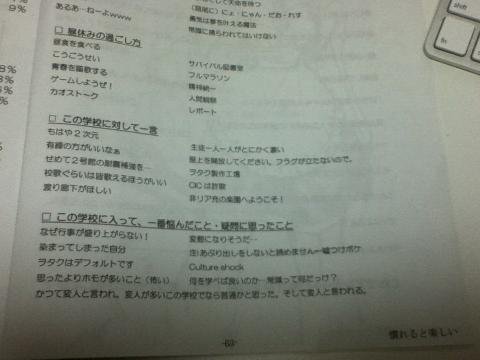 あるあ…ねーよwww
して天命を待つ
(語尾に)にょ・にゃん・だお・れす
勇気は夢を叶える魔法
常識に捕らわれてはいけない
□ 昼休みの過ごし方
昼食を食べる
こうごうせい
青春を謳歌する
ゲームしようぜ!
カオストーク
サバイバル図書室
フルマラソン
精神統一
人間観察
レポート
□ この学校に対して一言
もはや2次元
有線の方がいいなぁ
せめて2号館の耐震補強を…
校歌ぐらいは皆歌えるほうがいい
渡り廊下がほしい
生徒一人一人がとにかく濃い
屋上を開放してください。フラグが立たないので。
ヲタク製作工場
CICは詐欺
非リア充の楽園へようこそ!
□ この学校に入って、一番悩んだこと・疑問に思ったこと
なぜ行事が盛り上がらない!
染まってしまった自分
ヲタクはデフォルトです
思ったよりホモが多いこと(怖い)
変態になりそうだ…
注)あぶり出しをしないと読めません→嘘つけボケ
Culture shock
何を学べば良いのか…常識って何だっけ?
かつて変人と言われ。変人が多いこの学校でなら普通かと思った。そして変人と言われる。
-63-
慣れると楽しい
8%
6%
shift
fn